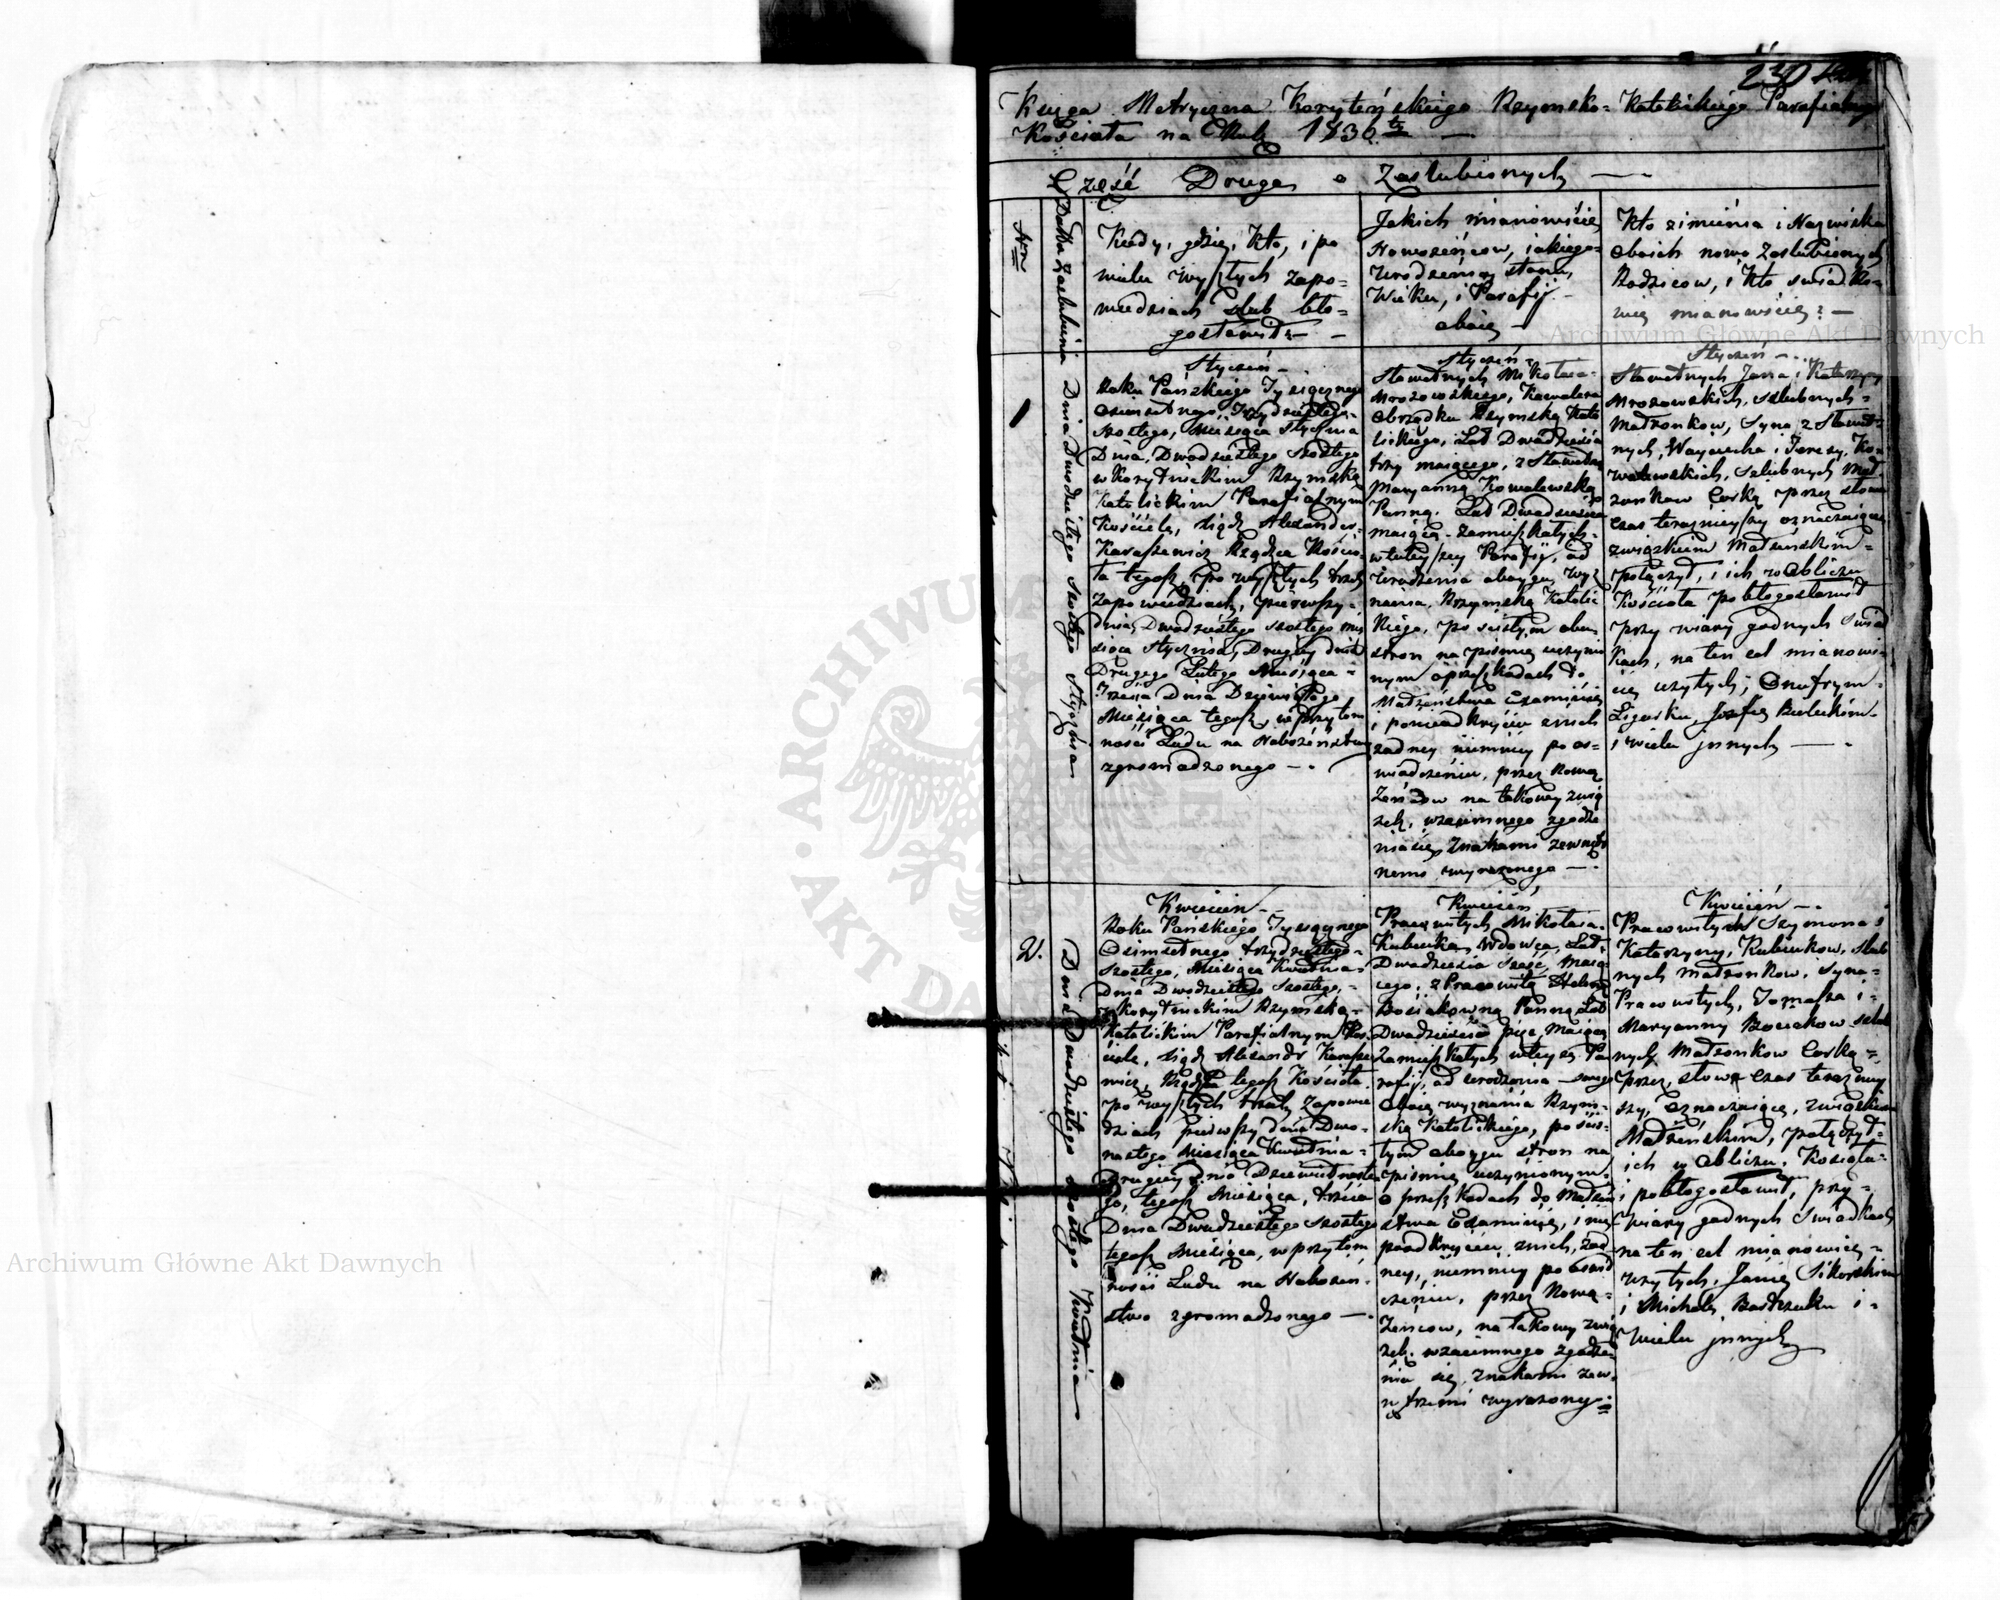 230
Księga Metryczna Koryteńskiego Rzymsko-Katolickiego Parafialnego
Kościoła na Rok 1836ty —
Część Druga o Zaslubionych —
Nro
Datta Zaslubinia
Kiedy, gdzie, Kto, i po
wielu wyszłych zapo-
wiedziach Slub bło-
gosławił? —
Jakich mianowicie
Nowożeńcow, jakiego
Urodzenia, stanu,
Wieku, i Parafij —
oboie —
Kto z imienia i Nazwiska
oboich nowo Zaslubionych
Rodzicow, i Kto swiadko-
wie mianowicie? —
1
Dnia Dwudziestego Szostego Stycznia
Styczeń —
Roku Pańskiego Tysiącznego
Osimsetnego, Trzydziestego
Szostego, Miesiąca Stycznia
Dnia, Dwodziestego Szostego
w Korytnickim Rzymsko
Katolickim Parafialnym
Kościele, Xiądz Alexander
Karaszewicz Rządca Kościo-
ła tegoż, po wyszłych trzech
Zapowiedziach, pierwszy
dnia Dwudziestego szostego mie
siąca Stycznia, Drugiey dnia
Drugego Lutego Miesiąca
Trzecia Dnia Dziewiątego
Miesiąca tegoż, w przytom
ności Ludu na Nabożeństwo
zgromadzonego —
Styczeń —
Sławetnych Mikołaia
Mrozowskiego, Kawalera
Obrządku Rzymsko Kato
lickiego, Lat Dwadziescia
trzy maiącego, z Sławetną
Maryanną Kowalewską
Panną. Lat Dwadziescia
maiącą. Zamieszkałych
w tuteyszey Parafij, od
Urodzenia oboygu wyz
nania, Rzymsko Katolic
kiego, po scisłym obu
stron na pismie uczynio
nym o przeszkodach do
Małżeństwa Examinie
i ponieodkryciu z nich
żadney niemniey po os-
wiadczeniu, przez Nowo
Żeńcow na takowy zwią
zek, wzaiemnego zgodze
nia się, znakami zewnętrz
nemi wyrażonego —
Styczeń —
Sławetnych Jana i Katarzyny
Mrozowskich, szlubnych
Małżonkow, Syna z Sławet
nych, Woyciecha i Teresy, Ko
walewskich, Szlubnych Mał
żonkow Corką przez słowa
czas terażnieyszy oznaczaiące
związkiem Małżeńskim
połączył, i ich w obliczu
Kościoła pobłogosławił
przy wiary godnych Swiad
kach, na ten cel mianowi
cie użytych; Onufrym
i wielu jnnych —
2.
Dnia Dwudziestego szostego Kwietnia
Kwiecień —
Roku Pańskiego Tysiącznego
Osimsetnego trzydziestego
Szostego, Miesiąca Kwietnia
dnia Dwodziestego Szostego,
w Korytnickim Rzymsko
Katolickim Parafialnym Koś
ciele, Xiądz Alexandr Karasze
wicz, Rządca tegoż Kościoła
po wyszłych trzech Zapowie
dziach pierwszy dnia Dwu-
nastego Miesiąca Kwietnia
Drugiey dnia Dziewiętnaste
go, tegoż Miesiąca, trzecia
Dnia Dwudziestego Szostego
tegoż Miesiąca, w przytom
ności Ludu na Nabożeń
stwo zgromadzonego —
Kwiecień
Pracowitych Mikołaia
Kubiuka, Wdowca, Lat
Dwadziescia Szesć, maią
cego, z Pracowitą Heleną
Bociakowną Panną Lat
Dwadziescia pięc Maiącą
Zamieszkałych w tey sz Pa
rafij, od Urodzenia swego
oboie wyznania Rzym
sko Katolickiego, po scis
łym oboygu stron na
pismie uczynionym
o przeszkodach do Małżeń
stwa Examinie, i nie
poodkryciu z nich, żad
ney, niemniey po oswiad
czeniu, przez Nowo
Żeńcow, na takowy zwią
zek. wzaiemnego zgodze
nia się, znakami zew-
nętrzemi wyrażony
Kwiecień —
Pracowitych Szymona i
Katarzyny, Kubiukow, szlub
nych Małżonkow, Syna
Pracowitych, Tomasza i
Maryanny Bociakow szlub
nych Małżonkow Corką,
przez słowa czas terażniey
szy, oznaczaiące, związkiem
Małżeńskim, połączył
ich w obliczu. Kościoła
i pobłogosławił, przy
wiary godnych Swiadkach
na ten cel mianowicie
użytych. Janie Sikorskim
i Michale Bartczuku i
Wielu jnnych
Archiwum Główne Akt Dawnych
Archiwum Główne Akt Dawnych
ARCHIWUM
AKT DAWNYCH